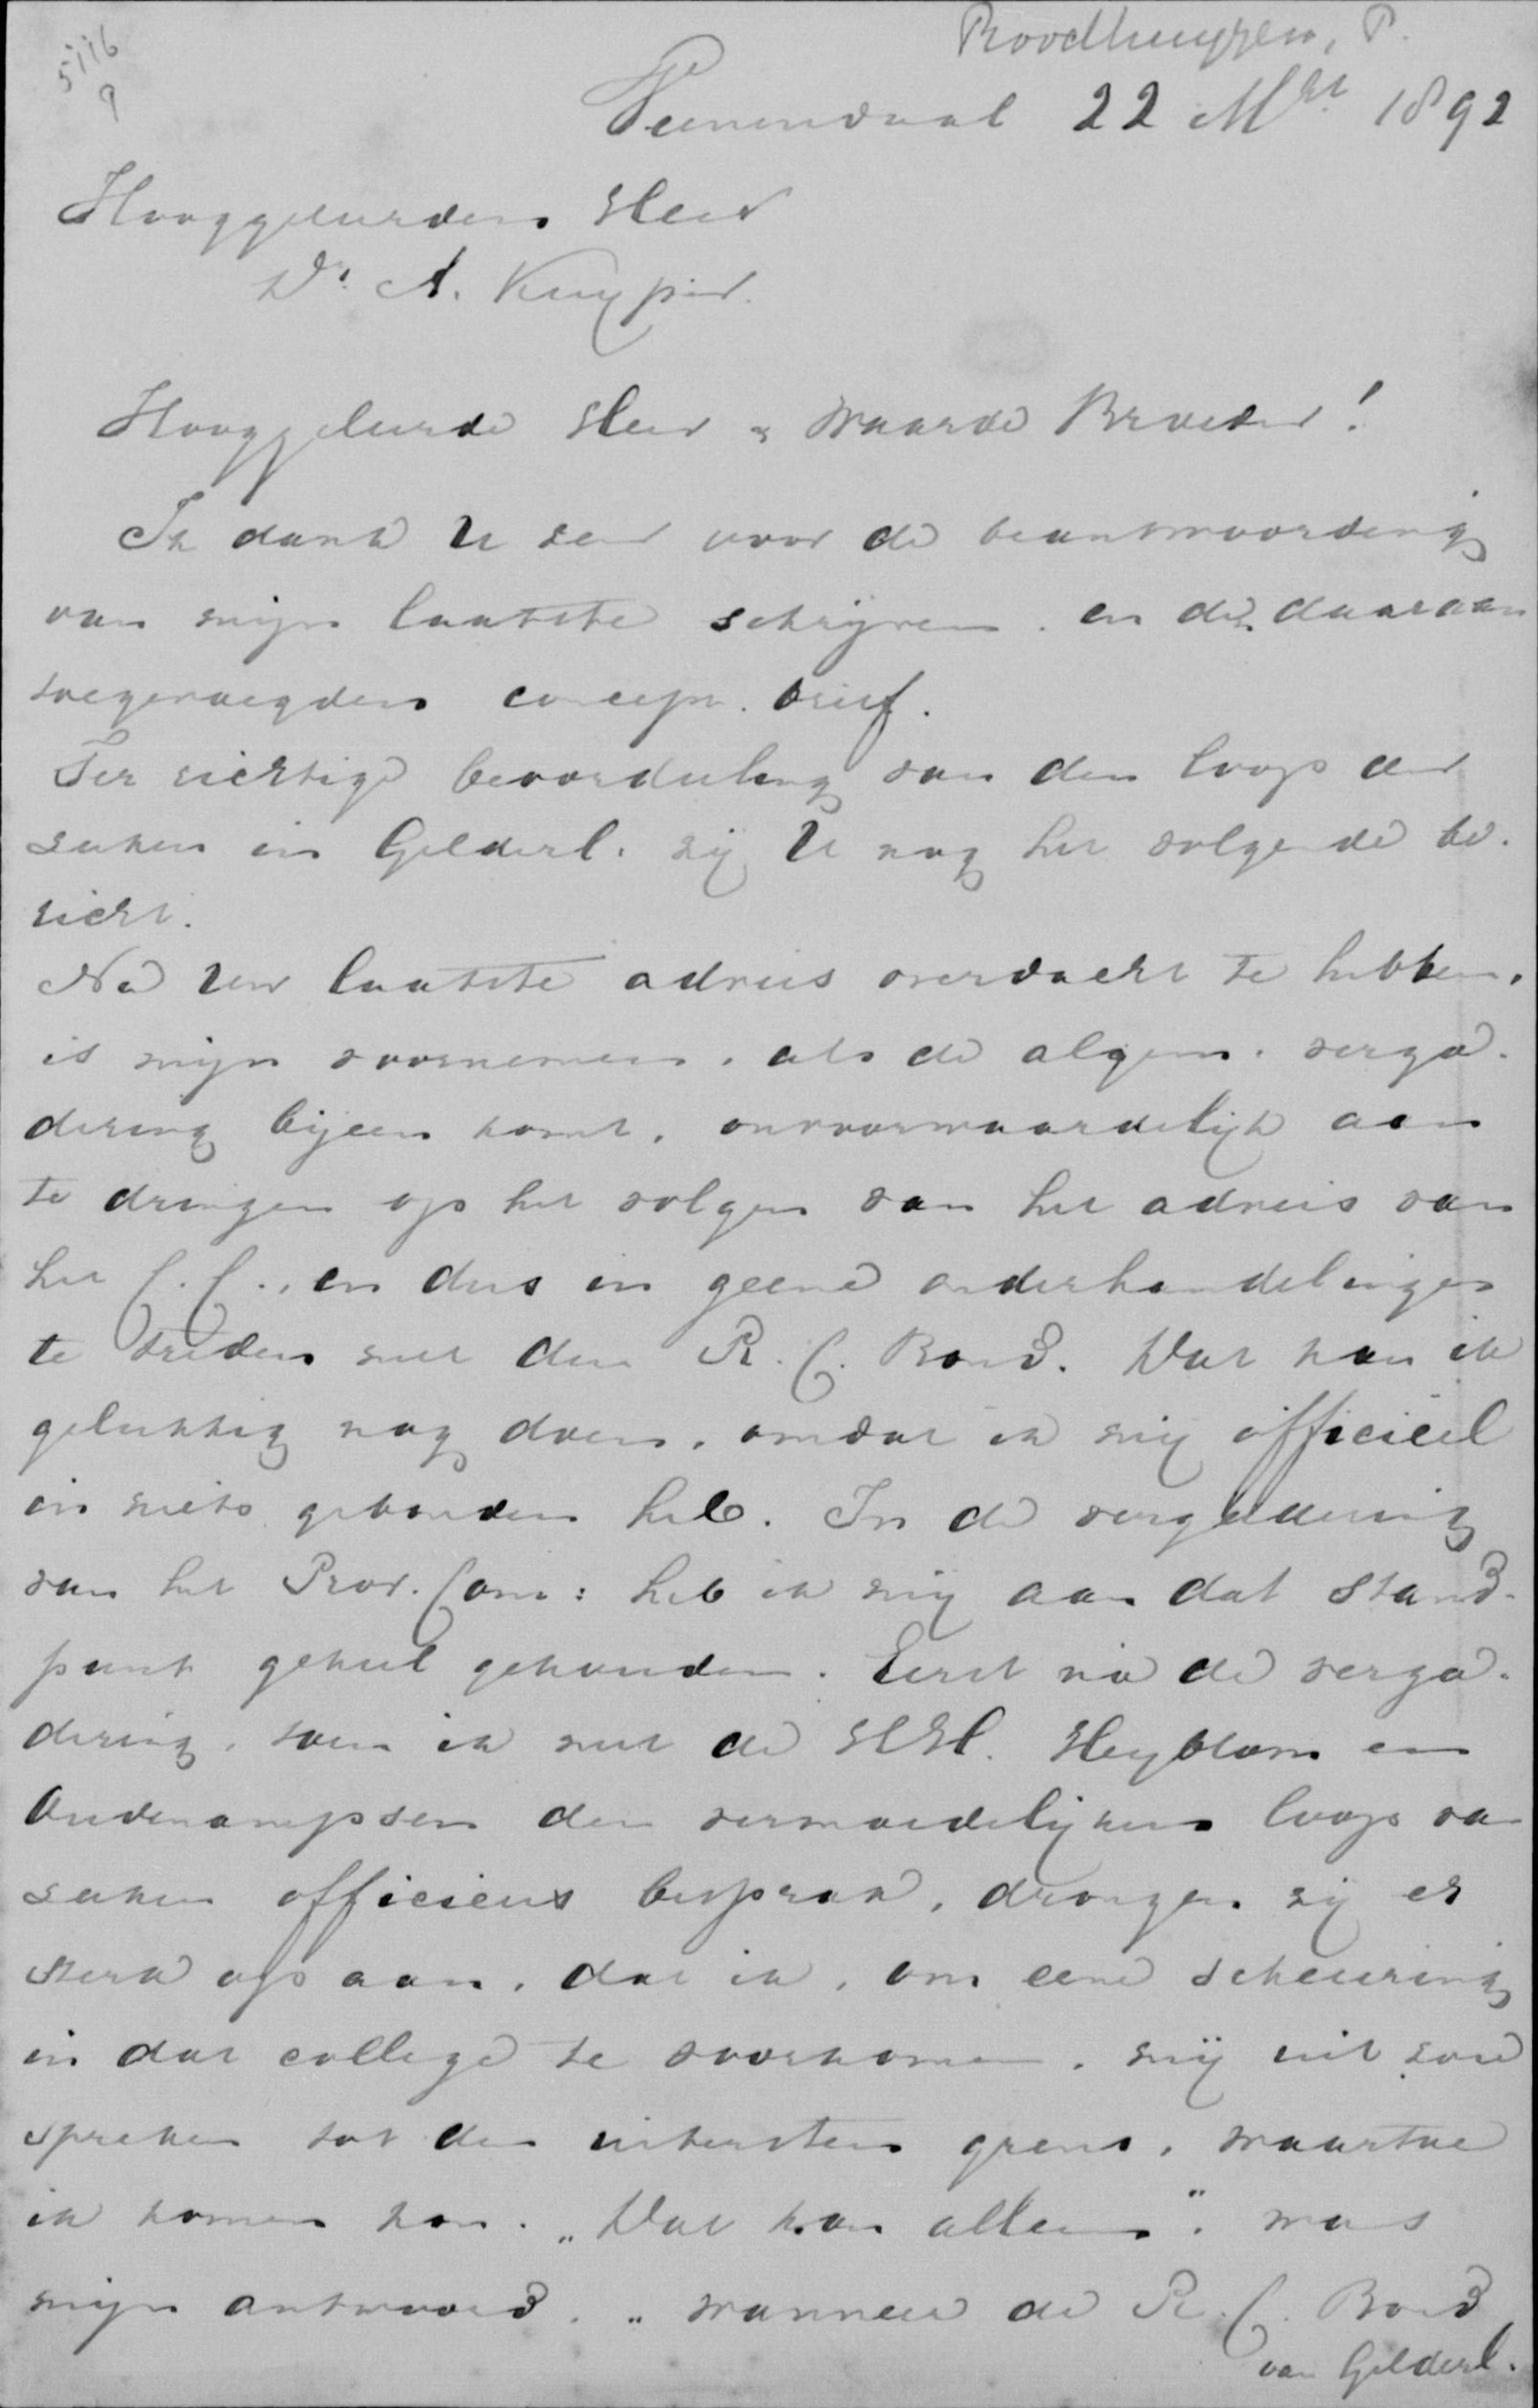 Roodhuyzen, P.
5116
9
Veenendaal 22 Mrt 1892
Hooggeleerden Heer
Dr. A. Kuyper.
Hooggeleerde Heer & Waarde Broeder!
Ik dank U zeer voor de beantwoording
van mijn laatste schrijven. en de daaraan
toegevoegden concept. brief.
Ter richtige beoordeeling van den loop der
zaken in Gelderl. zij U nog het volgende be-
richt.
Na Uw laatste advies overdacht te hebben,
is mijn voornemen, als de algem. verga-
dering bijeen komt, onvoorwaardelijk aan
te dringen op het volgen van het advies van
het C. C., en dus in geene onderhandelingen
te treden met den R. C. Bond. Dat kan ik
gelukkig nog doen, omdat ik mij officieel
in niets gebonden heb. In de vergadering
van het Prov. Com: heb ik mij aan dat stand-
punt geheel gehouden. Eerst na de verga-
dering, toen ik met de HH. Heyblom en
Oudenampsen den vermoedelijken loop van
zaken officieus besprak, drongen zij er
sterk op aan, dat ik, om eene scheuring
in dat college te voorkomen, mij uit zou
spreken tot den uitersten grens, waartoe
ik komen kon. „Dat kan alleen", was
mijn antwoord, „wanneer de R. C. Bond
van Gelderl.